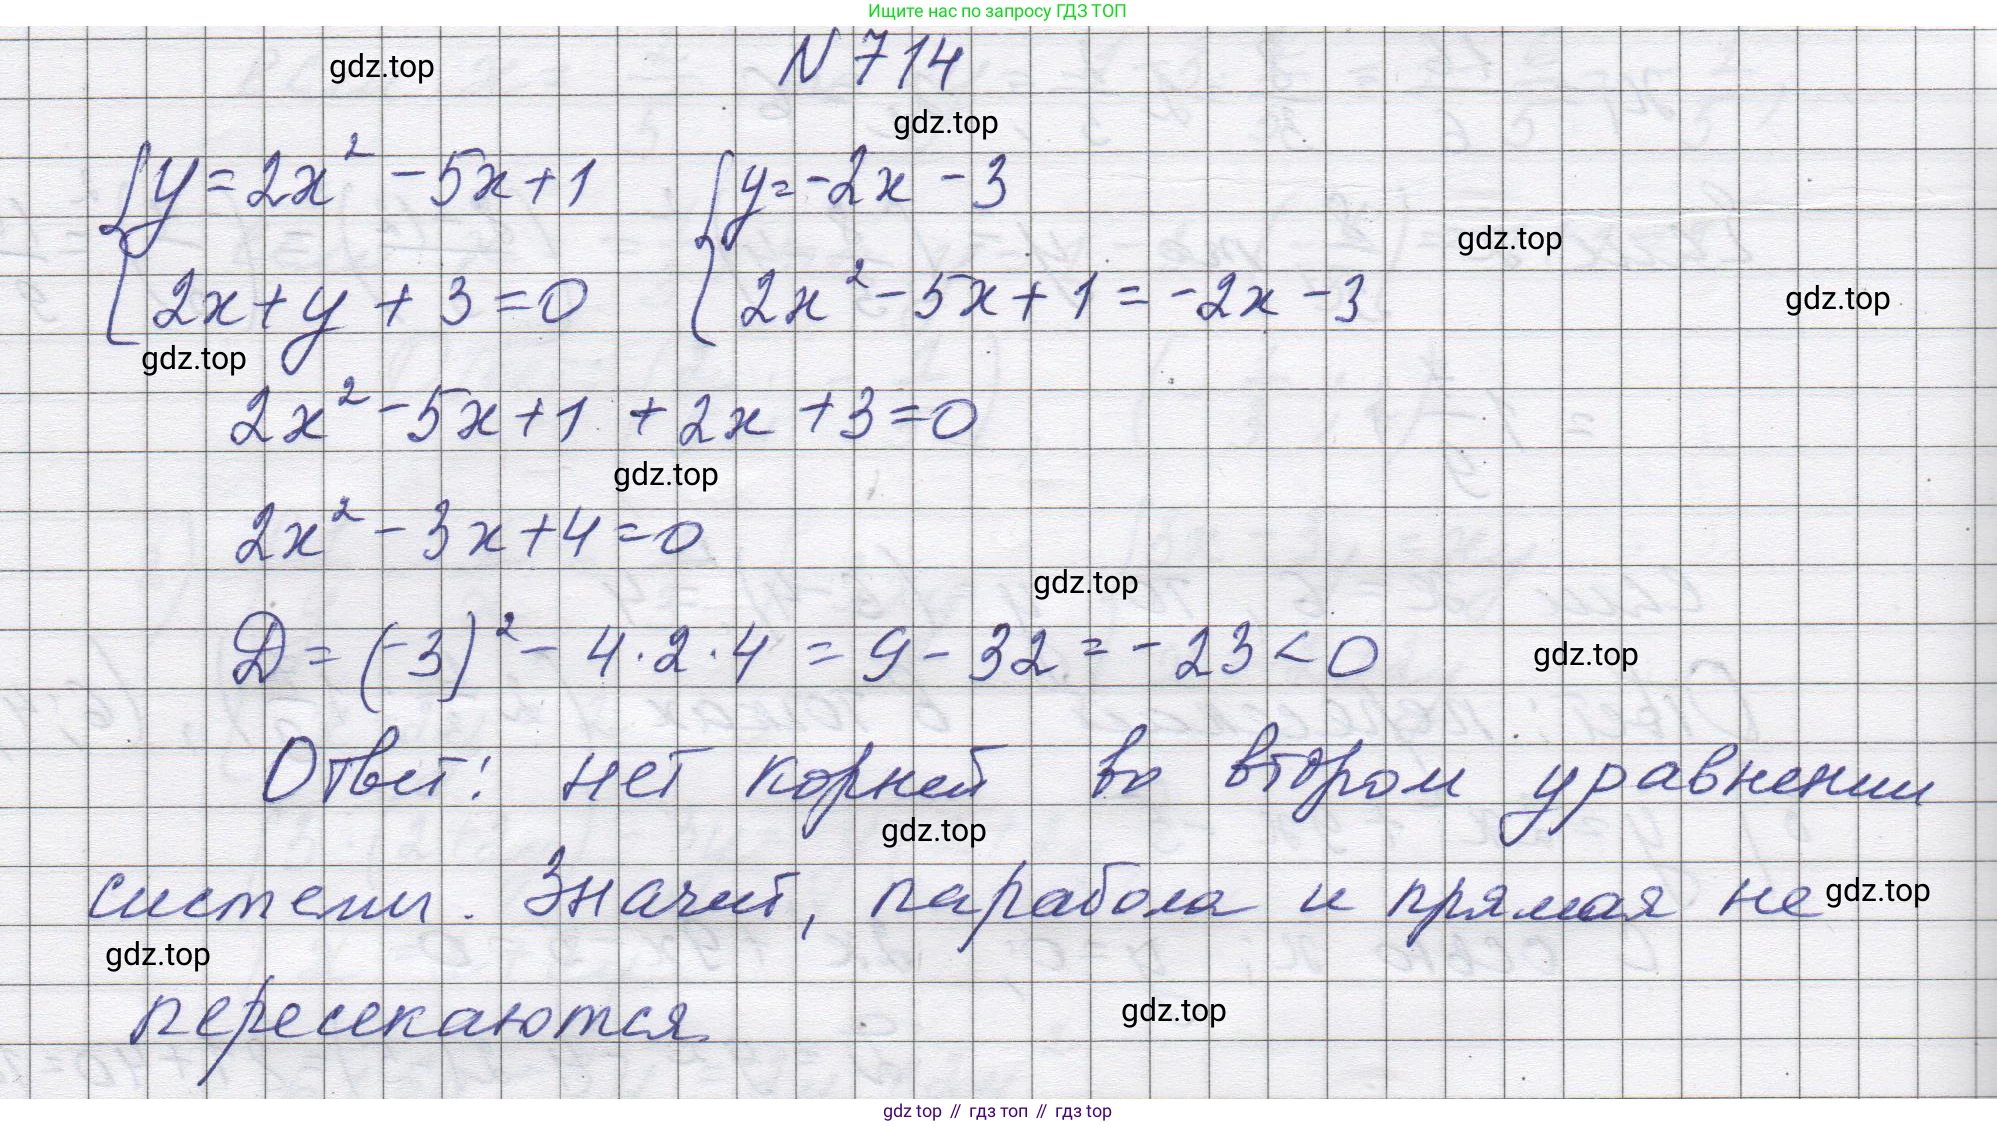 Ищите нас по запросу ГДЗ ТОП
N 714
gdz.top
gdz.top
{ y = 2x² - 5x + 1   { y = -2x - 3
gdz.top
{ 2x + y + 3 = 0   { 2x² - 5x + 1 = -2x - 3
gdz.top
gdz.top
2x² - 5x + 1 + 2x + 3 = 0
gdz.top
2x² - 3x + 4 = 0
gdz.top
D = (-3)² - 4 · 2 · 4 = 9 - 32 = -23 < 0
gdz.top
Ответ: нет корней во втором уравнении
gdz.top
системы. Значит, парабола и прямая не
gdz.top
gdz.top
пересекаются
gdz.top
gdz top // гдз топ // гдз top